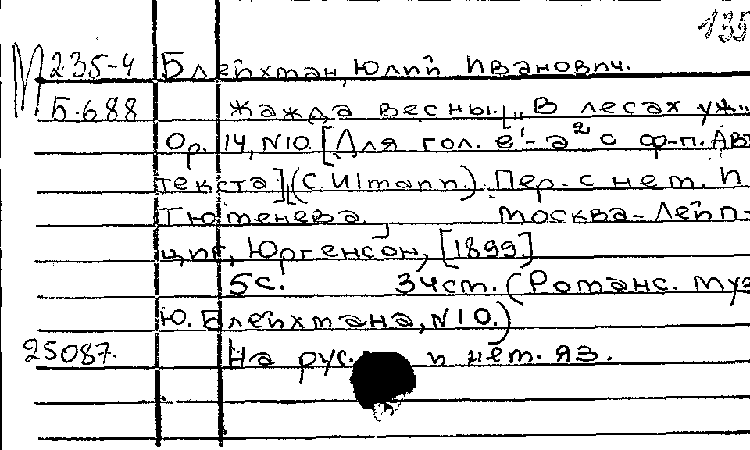 135
М 235-4 Блейхман, Юлий Иванович.
Б.688 Жажда весны. [„В лесах уж..
Op. 14, N10. [Для гол. e¹-a² с ф-п. Авт
текста] (C. Ulmann). Пер. с нем. П.
Тютенева. Москва-Лейп-
циг, Юргенсон, [1899]
5с. 34см. (Романс. муз
Ю. Блейхмана, N10.)
25087. На рус. и нем. яз.